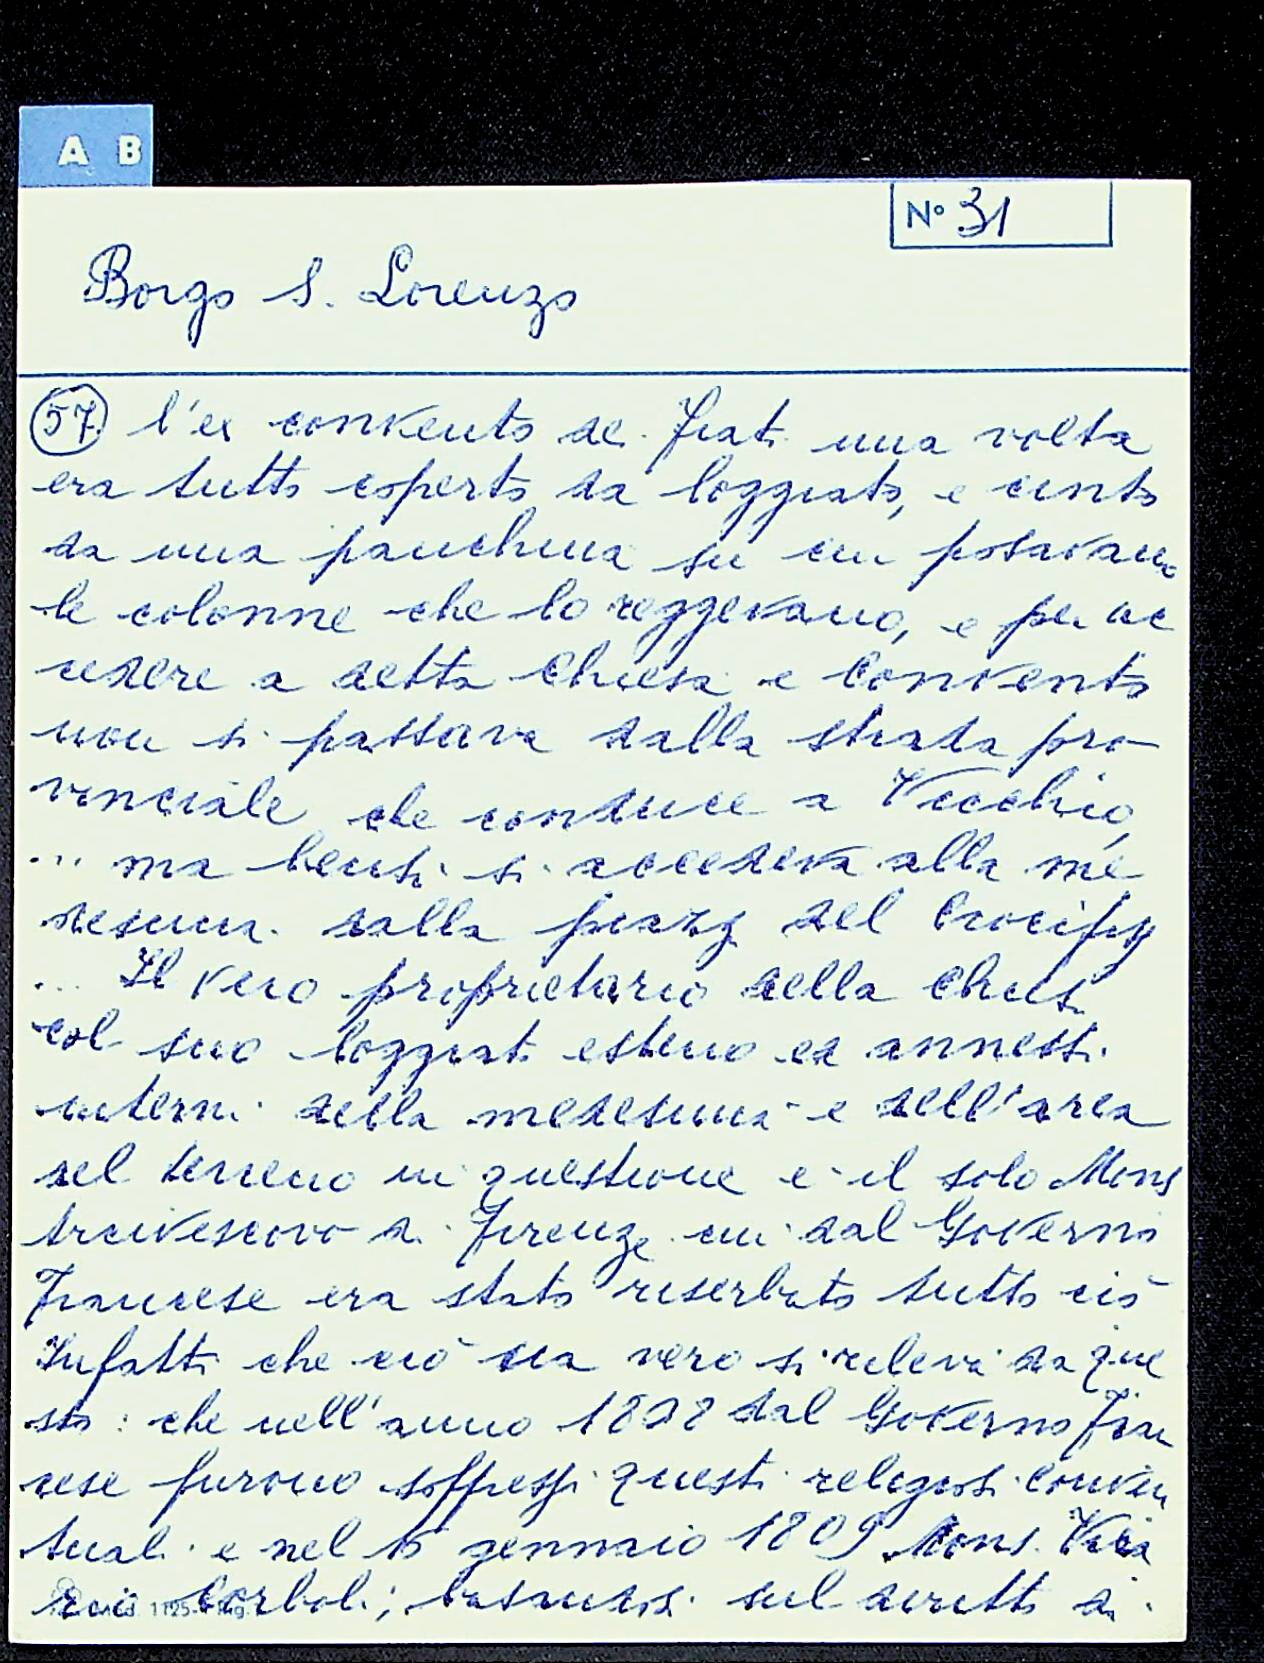 A B
N° 31
Borgo S. Lorenzo
57 l'ex convento dei Frati una volta
era tutto coperto da loggiato, e cinto
da una panchina su cui posavano
le colonne che lo reggevano, e per ac
cedere a detta Chiesa e Convento
non si passava dalla strada pro-
vinciale che conduce a Vicchio,
... ma bensì si accedeva alla me
desima dalla piazza del Crocifisso
... Il vero proprietario della Chiesa
col suo loggiato esterno ed annessi
interni della medesima e dell'area
del terreno in questione è il solo Mons
Arcivescovo di Firenze cui dal Governo
Francese era stato riserbato tutto ciò
Infatti che ciò sia vero si rileva da que
sto: che nell'anno 1808 dal Governo Fran
cese furono soppressi questi religiosi Conven
tuali e nel 15 gennaio 1809 Mons. Vica
rio Corboli; basandosi sul diritto di